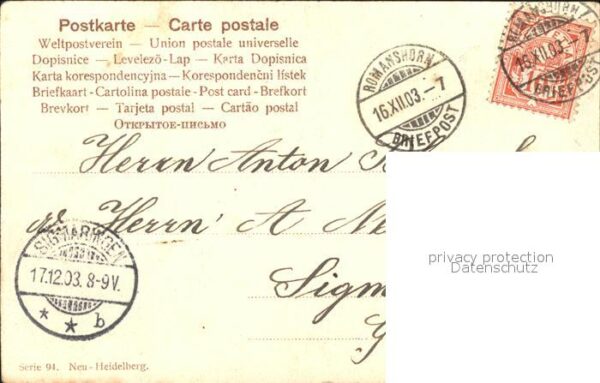 Postkarte — Carte postale
Weltpostverein — Union postale universelle
Dopisnice — Levelező-Lap — Karta Dopisnica
Karta korespondencyjna — Korespondenční lístek
Briefkaart - Cartolina postale - Post card - Brefkort
Brevkort — Tarjeta postal — Cartão postal
Открытое-письмо
ROMANSHORN
16.XII.03.–7
BRIEFPOST
ROMANSHORN
16.XII.03.–7
BRIEFPOST
Herrn Anton
Herrn A
Sigm
SIGMARINGEN
17.12.03. 8-9V.
* * b
privacy protection
Datenschutz
Serie 94. Neu-Heidelberg.